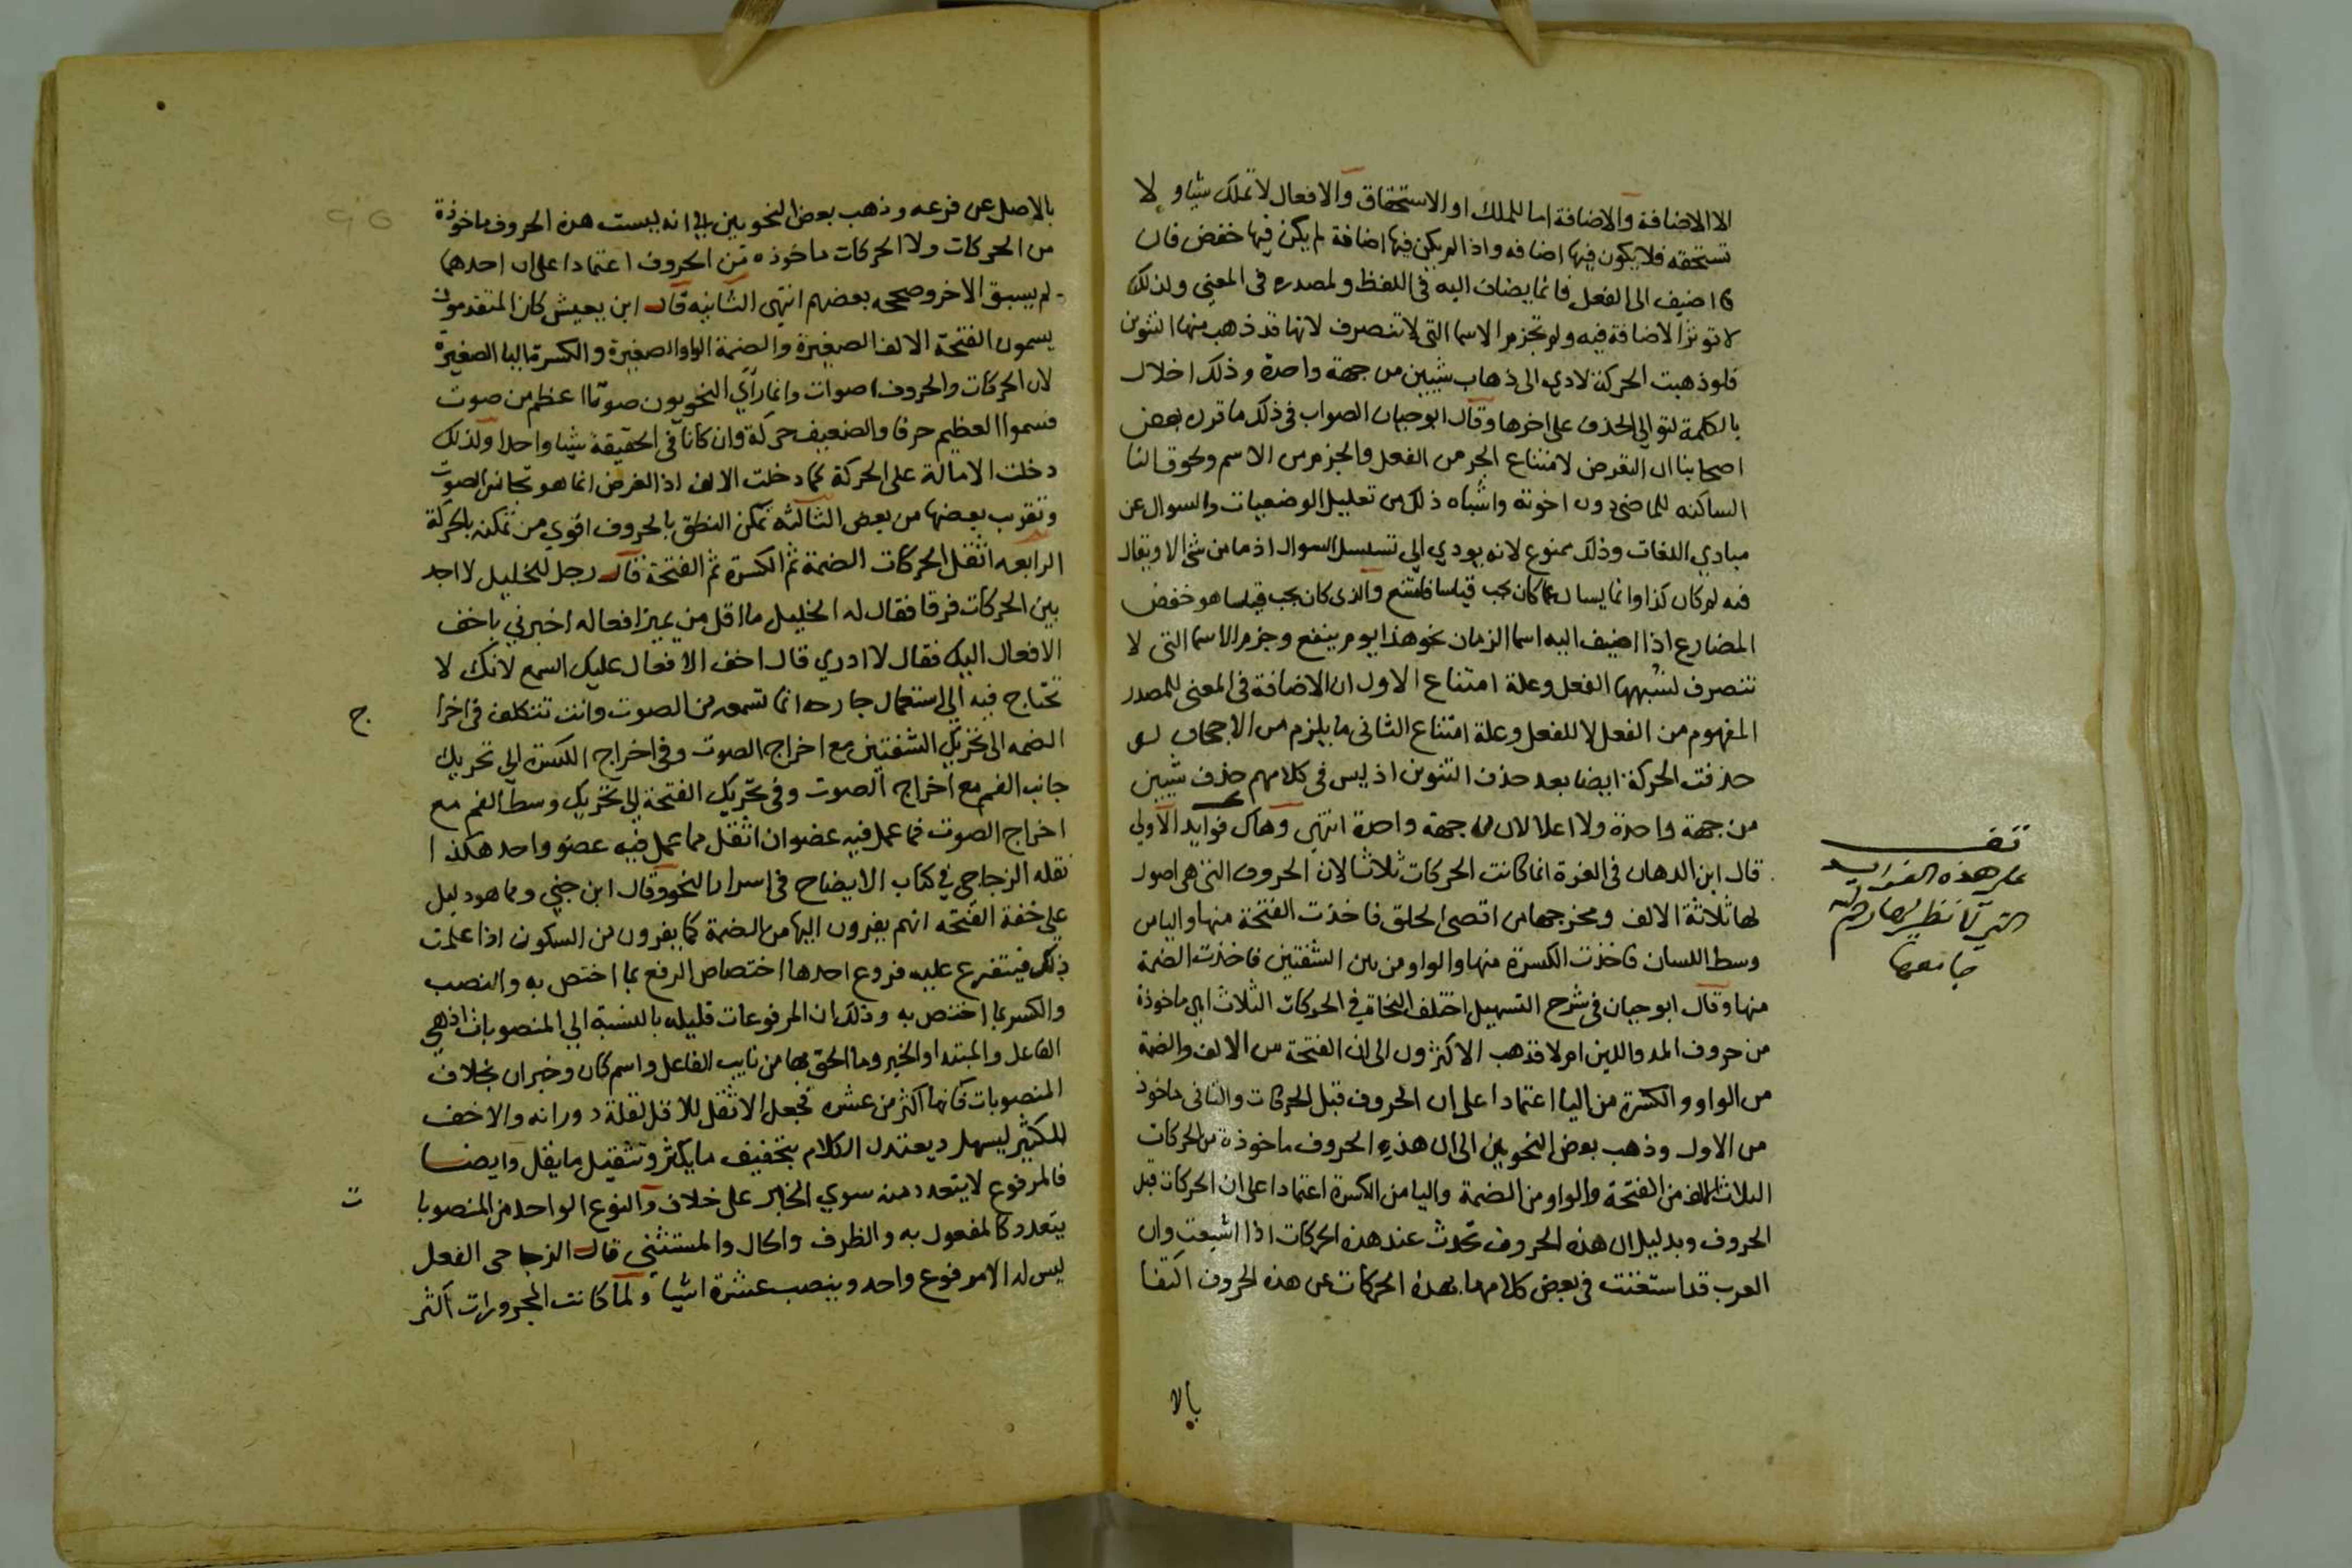 الا الاضافة والاضافة اما للملك او الاستحقاق والافعال لا تملك شيا ولا
تستحقه فلا يكون فيها اضافه واذا لم يكن فيها اضافة لم يكن فيها خفض فان
اضيف الى الفعل فانما يضاف اليه فى اللفظ ولمصدره فى المعنى ولذلك
لا توثر الاضافة فيه ولم تجزم الاسما التى لا تنصرف لانها قد ذهب منها التنوين
فلو ذهبت الحركة لادي الى ذهاب شييين من جهة واحدة وذلك اخلال
بالكلمة لتوالي الحذف على اخرها وقال ابو حيان الصواب فى ذلك ما قرره بعض
اصحابنا ان التعرض لامتناع الجر من الفعل والجزم من الاسم ولحوق التا
الساكنه للماضي دون اخوته واشباه ذلك من تعليل الوضعيات والسوال عن
مبادي اللغات وذلك ممنوع لانه يودي الي تسلسل السوال اذ ما من شي الا ويقال
فيه لم كان كذا وانما يسال عما كان يجب قياسا فامتنع والذى كان يجب قياسا هو خفض
المضارع اذا اضيف اليه اسما الزمان نحو هذا يوم ينفع وجزم الاسما التى لا
تنصرف لشبهها الفعل وعلة امتناع الاول ان الاضافة فى المعنى للمصدر
المفهوم من الفعل لا للفعل وعلة امتناع الثانى ما يلزم من الاجحاف لو
حذفت الحركة ايضا بعد حذف التنوين اذ ليس فى كلامهم حذف شييين
من جهة واحدة ولا اعلالان من جهة واحدة انتهى وهاك فوايد الاولي
قال ابن الدهان فى الغرة انما كانت الحركات ثلاثا لان الحروف التى هى اصول
لها ثلاثة الالف ومخرجها من اقصى الحلق فاخذت الفتحة منها والياس
وسط اللسان فاخذت الكسرة منها والواو من بين الشفتين فاخذت الضمة
منها وقال ابو حيان فى شرح التسهيل اختلف النحاة في الحركات الثلاث اهي ماخوذة
من حروف المد واللين ام لا فذهب الاكثرون الى ان الفتحة من الالف والضمة
من الواو والكسرة من اليا اعتمادا على ان الحروف قبل الحركات والثانى ماخوذ
من الاول وذهب بعض النحويين الى ان هذه الحروف ماخوذة من الحركات
الثلاث الالف من الفتحة والواو من الضمة واليا من الكسرة اعتمادا على ان الحركات قبل
الحروف وبدليل ان هذه الحروف تحدث عند هذه الحركات اذا اشبعت وان
العرب قد استغنت فى بعض كلامها بهذه الحركات عن هذه الحروف اكتفا
بالا
قف
على هذه الفوايد
التى لا نظير لها رحم الله
جامعها
بالاصل عن فرعه وذهب بعض النحويين الي انه ليست هذه الحروف ماخوذة
من الحركات ولا الحركات ماخوذه من الحروف اعتمادا على ان احدهما
لم يسبق الاخر وصححه بعضهم انتهى الثانيه قال ابن يعيش كان المتقدمون
يسمون الفتحة الالف الصغيرة والضمة الواو الصغيرة والكسرة اليا الصغيرة
لان الحركات والحروف اصوات وانما رأي النحويون صوتا اعظم من صوت
فسموا العظيم حرفا والضعيف حركة وان كانا في الحقيقة شيا واحدا ولذلك
دخلت الامالة على الحركة كما دخلت الالف اذ الغرض انما هو تجانس الصوت
وتقرب بعضها من بعض الثالثه تمكن النطق بالحروف اقوي من تمكنه بالحركة
الرابعه اثقل الحركات الضمة ثم الكسرة ثم الفتحة قال رجل للخليل لا اجد
بين الحركات فرقا فقال له الخليل ما اقل من يميز افعاله اخبرني باخف
الافعال اليك فقال لا ادري قال اخف الافعال عليك السمع لانك لا
تحتاج فيه الي استعمال جارحه انما تسمعه من الصوت وانت تتكلف فى اخرا
ج
الضمه الى تحريك الشفتين مع اخراج الصوت وفى اخراج الكسرة الي تحريك
جانب الفم مع اخراج الصوت وفى تحريك الفتحة الي تحريك وسط الفم مع
اخراج الصوت فما عمل فيه عضوان اثقل مما عمل فيه عضو واحد هكذا
نقله الزجاجي في كتاب الايضاح فى اسرار النحو وقال ابن جني ومما هو دليل
على خفة الفتحه انهم يفرون اليها من الضمة كما يفرون من السكون اذا علمت
ذلك فيتفرع عليه فروع احدها اختصاص الرفع بما اختص به والنصب
والكسر بما اختص به وذلك ان المرفوعات قليله بالنسبة الي المنصوبات اذ هي
الفاعل والمبتدا والخبر وما الحق بها من نايب الفاعل واسم كان وخبر ان بخلاف
المنصوبات فانها اكثر من عشرة فجعل الاثقل للاقل لقلة دورانه والاخف
للكثير ليسهل ويعتدل الكلام بتخفيف ما يكثر وتثقيل ما يقل وايضا
فالمرفوع لا يتعدد منه سوي الخابر على خلاف والنوع الواحد من المنصوبا
ت
يتعدد كالمفعول به والظرف والحال والمستثني قال الزجاجى الفعل
ليس له الا مرفوع واحد وينصب عشرة اشيا ولما كانت المجرورات اكثر